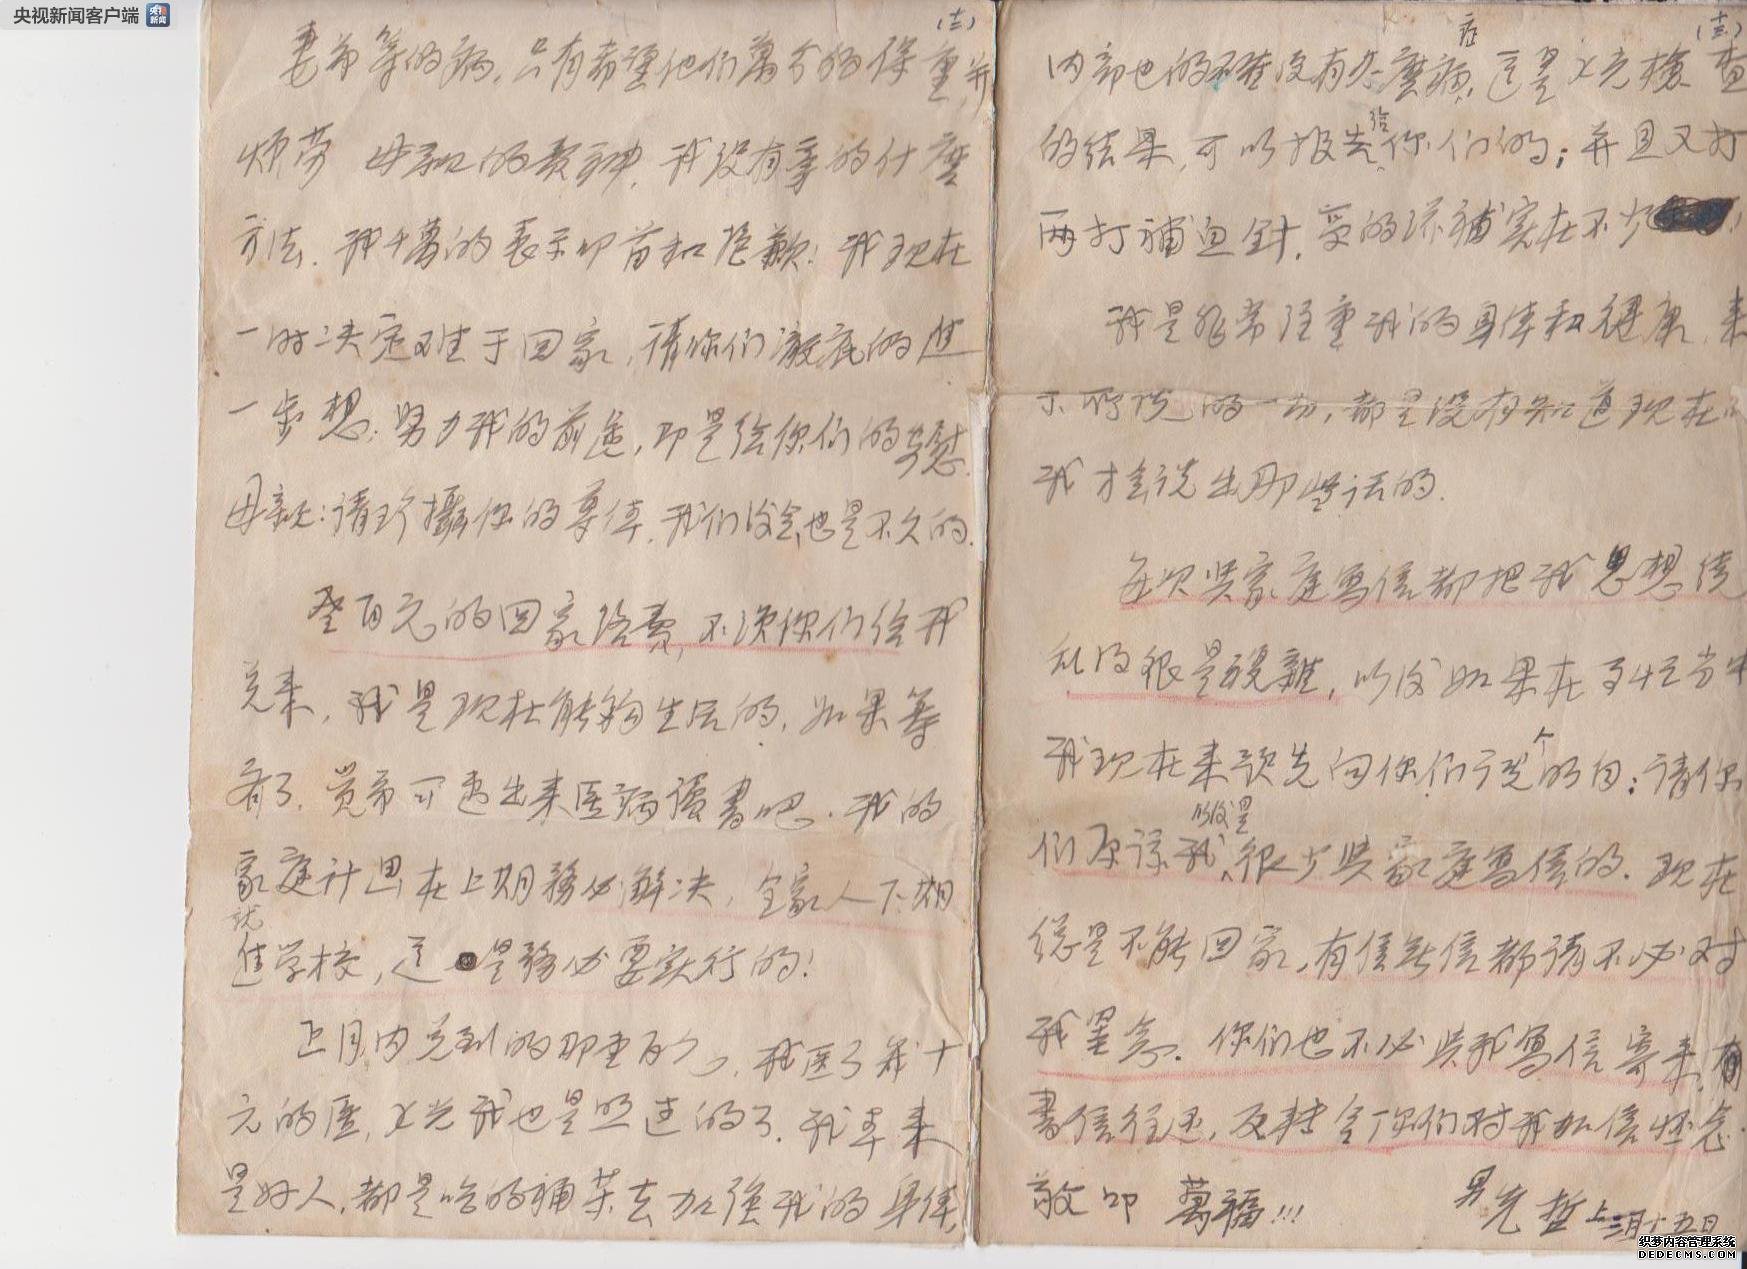 央视新闻客户端
央视
新闻
(十二)
妻弟等的病,只有希望他们万分的保重,并
烦劳 母亲的费神,我没有拿的什麽
方法,我千萬的表示叩首和抱歉!我现在
一时决定难于回家,请你们澈底的进
一步想:努力我的前途,即是给你们的安慰.
母亲:请珍攝你的尊体,我们后会也是不久的.
壹百元的回家路费,不须你们给我
兑来,我是现在能夠生活的,如果筹
有了,賞弟可速出来医病讀書吧.我的
家庭计画在上期務必解决,全家人下期
就
進学校,这是務必要实行的!
正月内兑到的那壹百
元的医,X光我也是照过的了.我本来
是好人,都是吃的補药去加强我的身体,
(十三)
症
内部也的确没有怎麽病,这是X光檢查
给
的结果,可以报告你们的;并且又打
两打補血針,受的滋補实在不少!
我是非常注重我的身体和健康,来
示所说的一切,都是没有知道现在的
我才会说出那些话的.
每次與家庭寫信都把我思想擾
乱的很是親難,以后如果在
个
我现在来预先向你们说的白:请你
以后是
们原谅我,很少與家庭寫信的.现在
總是不能回家,有信無信都请不必对
我罣念.你们也不必與我寫信寄来,有
書信往还,反转令你们对我加倍怀念.
敬叩 萬福!!!
男先哲上 三月十五日
织梦内容管理系统
DEDECMS.COM